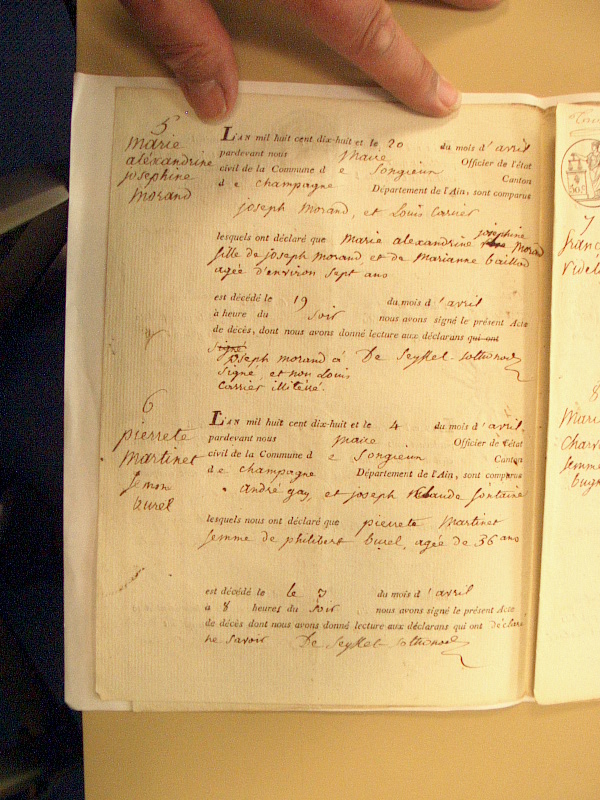 5
marie
alexandrine
josephine
morand
L'AN mil huit cent dix-huit et le 20 du mois d'avril
pardevant nous Maire Officier de l'état
civil de la Commune d e Songieun Canton
d e champagne Département de l'Ain, sont comparus
joseph Morand, et Louis Carrier
lesquels ont déclaré que Marie alexandrine josephine Morand
fille de joseph Morand, et de Marianne
agée d'environ sept ans
est décédé le 19 du mois d'avril
à heure du soir nous avons signé le présent Acte
de décès, dont nous avons donné lecture aux déclarans qui ont
signé
joseph morand à De Seyssel-Sothonod
signé et non Louis
Carrier illitéré.
6
pierrete
Martinet
femme
burel
L'AN mil huit cent dix-huit et le 4 du mois d'avril
pardevant nous Maire Officier de l'état
civil de la Commune d e Songieun Canton
d e champagne Département de l'Ain, sont comparus
andré gay, et joseph Claude fontaine
lesquels nous ont déclaré que pierrete Martinet
femme de philibert burel, agée de 36 ans
est décédé le le 3 du mois d'avril
à 8 heures du soir nous avons signé le présent Acte
de décès dont nous avons donné lecture aux déclarans qui ont déclaré
ne savoir De Seyssel-Sothonod
7
8